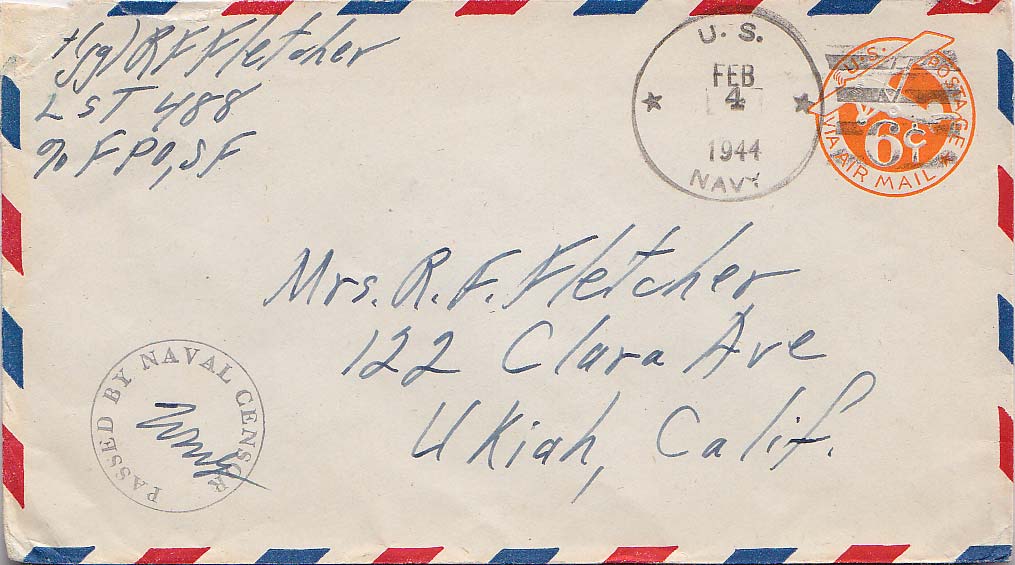 t(jg) R F Fletcher
LST 488
% F P O, S F
U. S.
FEB
4
1944
NAVY
U.S. POSTAGE
6¢
VIA AIR MAIL
Mrs. R. F. Fletcher
122 Clara Ave
Ukiah, Calif.
PASSED BY NAVAL CENSOR